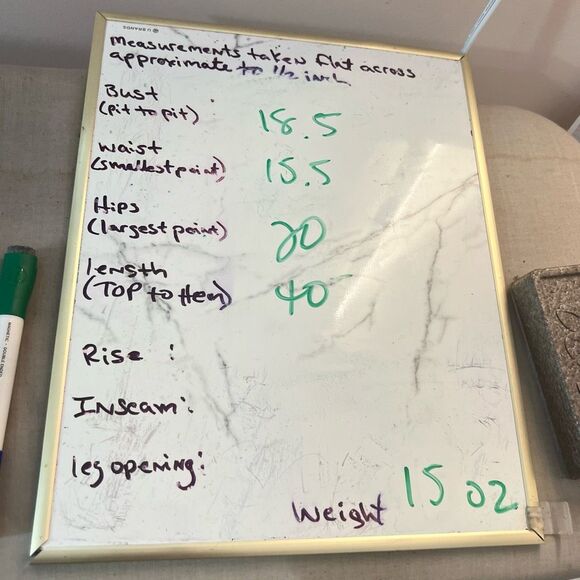 U BRANDS
measurements taken flat across
approximate to 1/2 inch
Bust
(pit to pit) 18.5
waist
(smallest point) 15.5
Hips
(largest point) 20
length
(TOP to Hem) 40
Rise :
Inseam:
leg opening:
Weight 15 oz